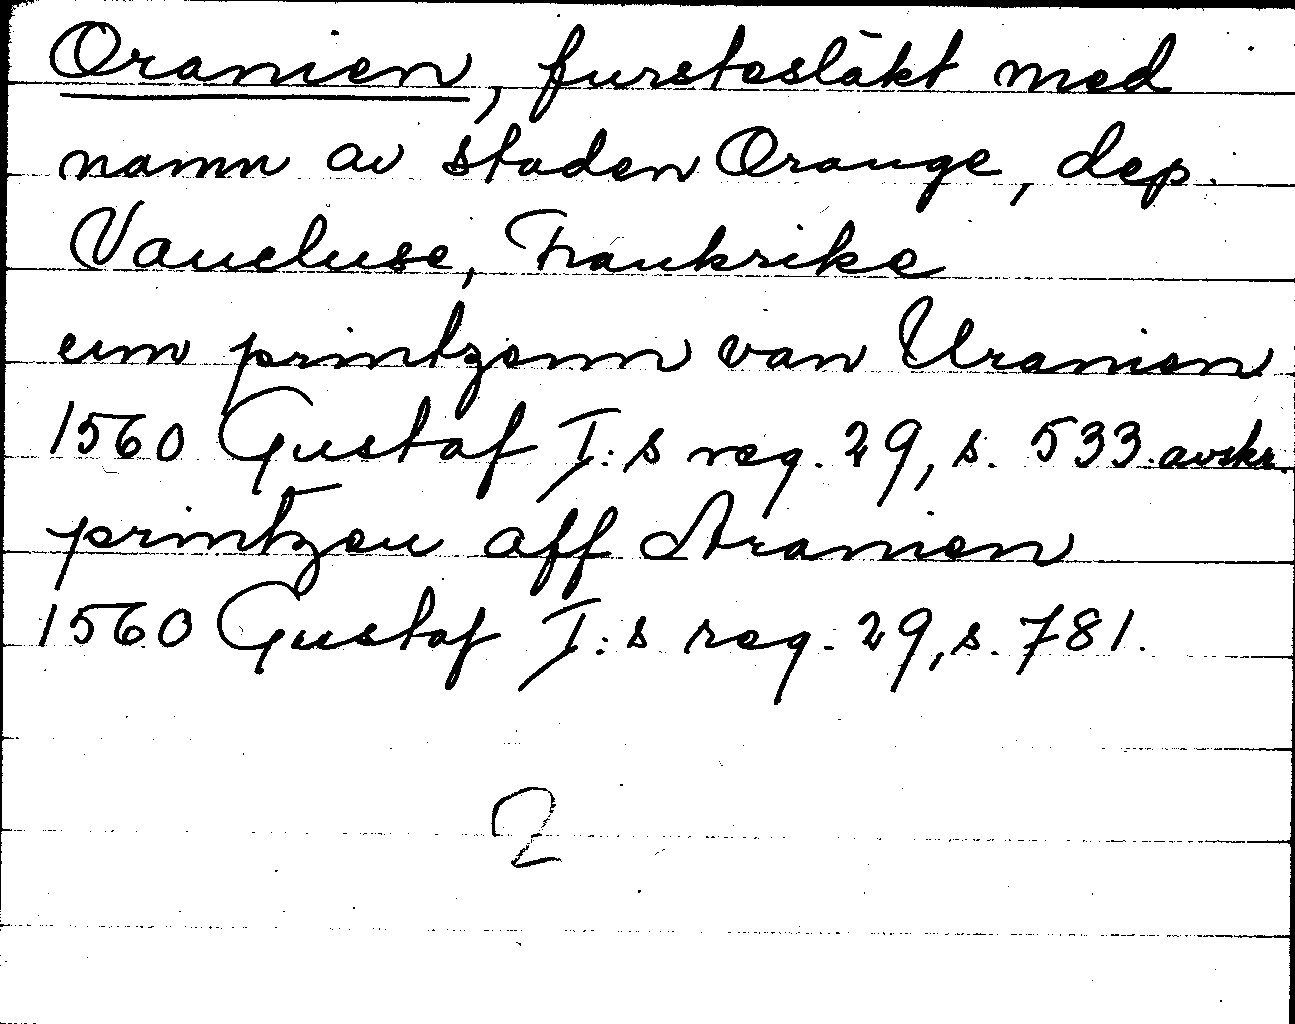 Oranien, furstesläkt med
namn av staden Orange, dep.
Vaucluse, Frankrike
eim printzenn van Uranien
1560 Gustaf I:s reg. 29, s. 533 avskr.
printzen aff Aranien
1560 Gustaf I:s reg. 29, s. 781.
2